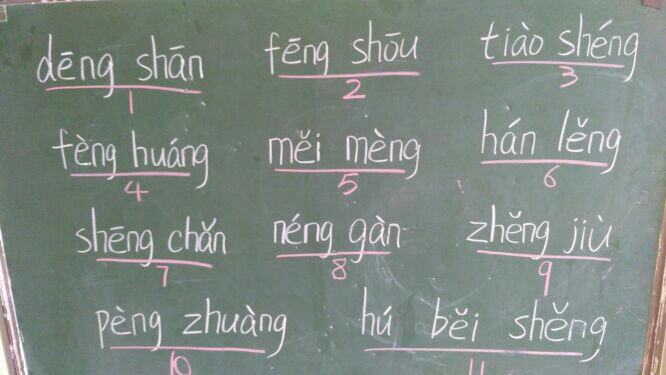 dēng shān fēng shōu tiào shéng
1 2 3
fèng huáng měi mèng hán lěng
4 5 6
shēng chǎn néng gàn zhěng jiù
7 8 9
pèng zhuàng hú běi shěng
10 11